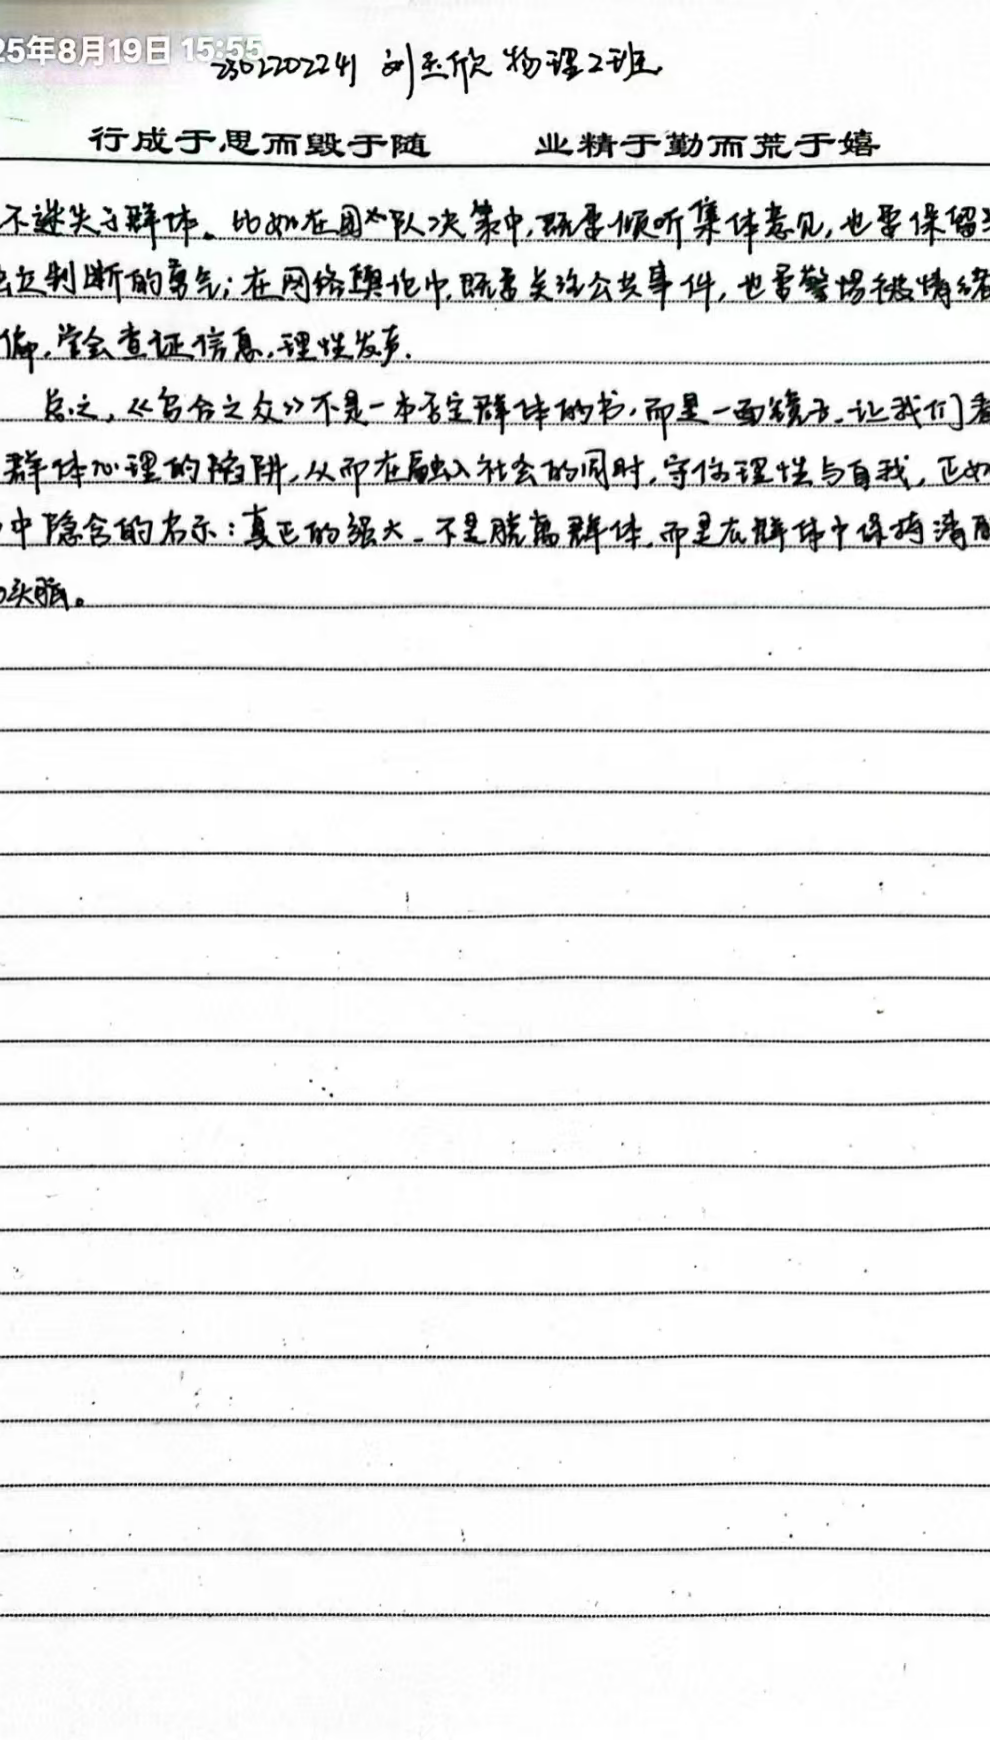 25年8月19日 15:55
2302202241 刘玉欣 物理2班
行成于思而毁于随 业精于勤而荒于嬉
不迷失于群体。比如在团队决策中,既要倾听集体意见,也要保留
立判断的勇气;在网络舆论中,既要关注公共事件,也要警惕被情绪
偏,学会查证信息,理性发声.
总之,《乌合之众》不是一本否定群体的书,而是一面镜子,让我们看
群体心理的陷阱,从而在融入社会的同时,守住理性与自我,正如
中隐含的启示:真正的强大,不是脱离群体,而是在群体中保持清醒
头脑。